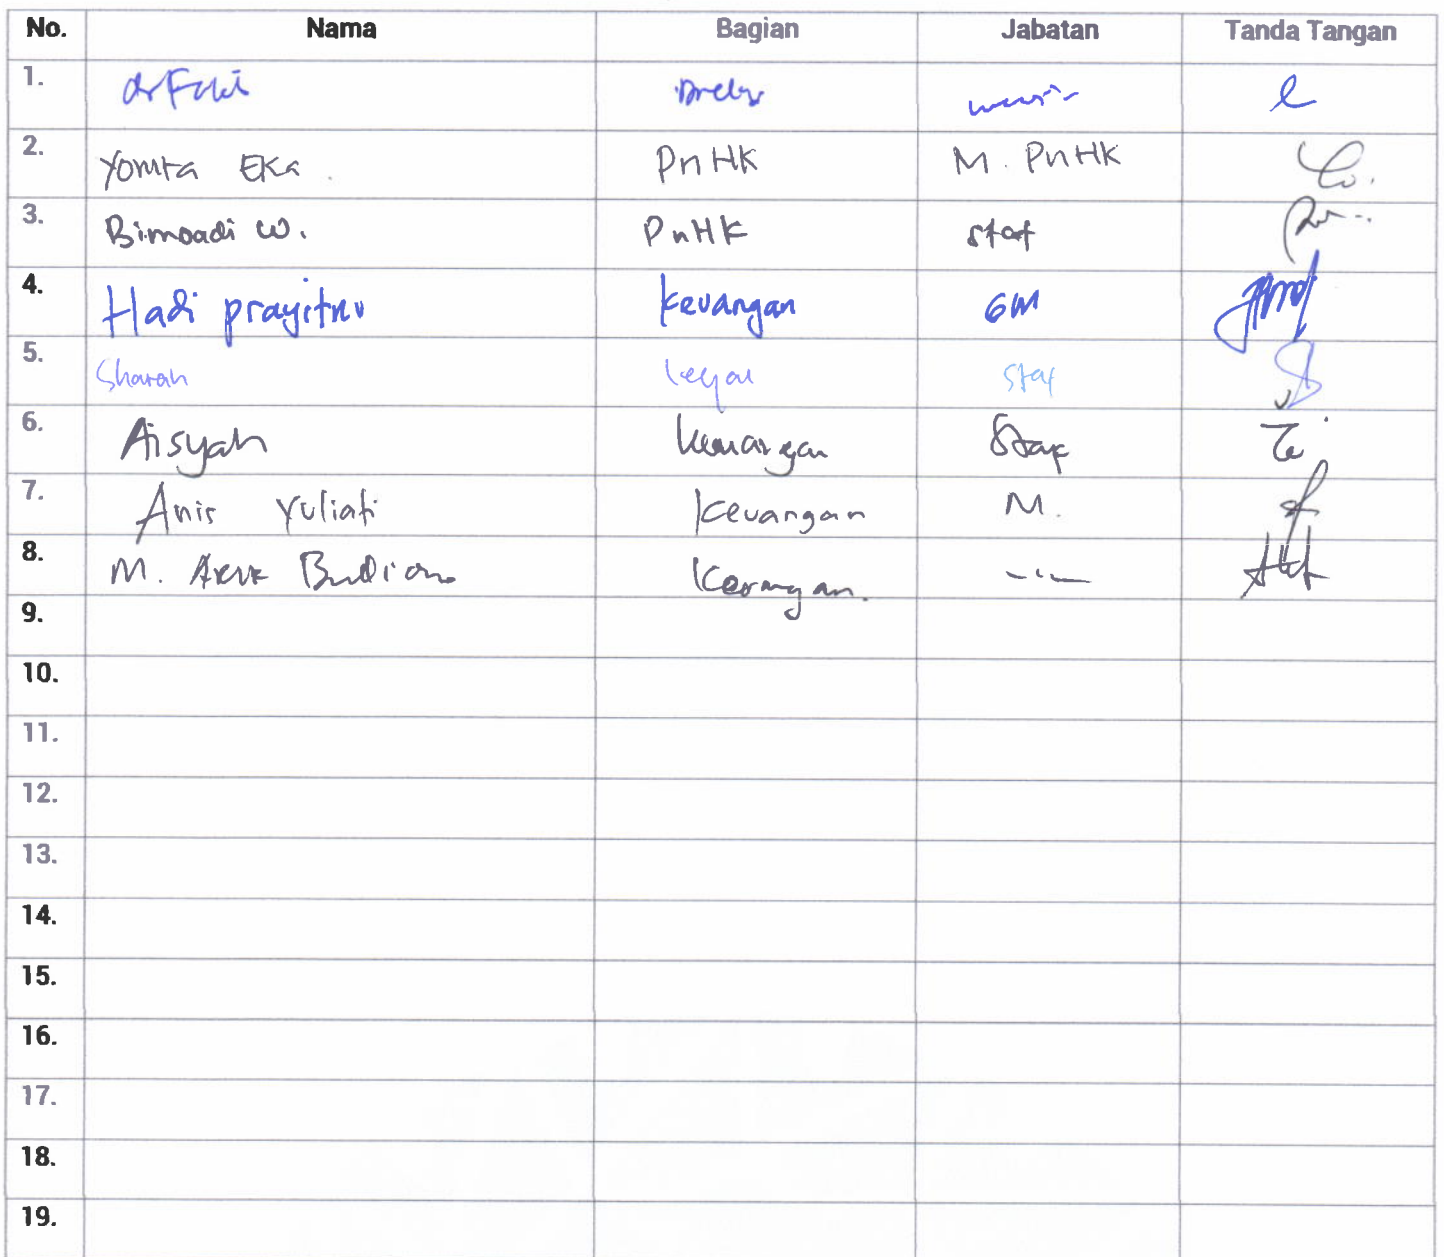 No. Nama Bagian Jabatan Tanda Tangan
1.
2. Yomta Eka. PnHK M. PnHK
3. Bimoadi W. PnHK staf
4. Hadi prayitno keuangan GM
5. Sharah legal Staf
6. Aisyah keuangan Staf
7. Anis Yuliati Keuangan M.
8. M. Keuangan.
9.
10.
11.
12.
13.
14.
15.
16.
17.
18.
19.